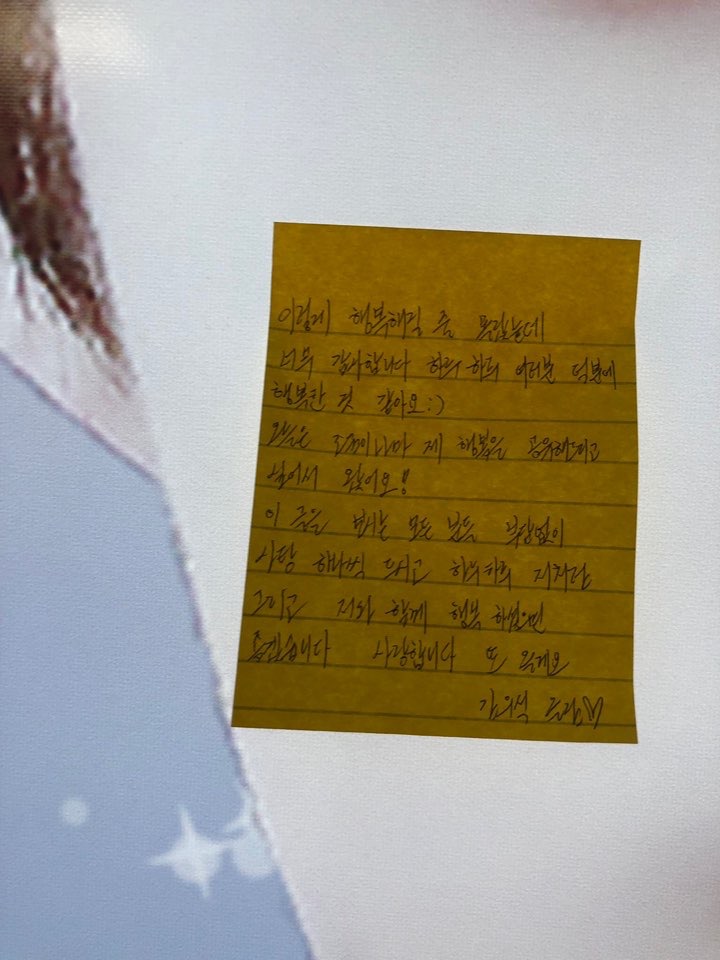 이렇게 행복해질 줄 몰랐는데
너무 감사합니다 하루하루 여러분 덕분에
행복한 것 같아요:)
오늘은 조금이나마 제 행복을 공유해드리고
싶어서 왔어요!
이 글을 보시는 모든 분들 부담없이
사탕 하나씩 드시고 하루하루
그리고 저와 함께 행복 하셨으면
좋겠습니다 사랑합니다 또 올게요
김우석 드림♡